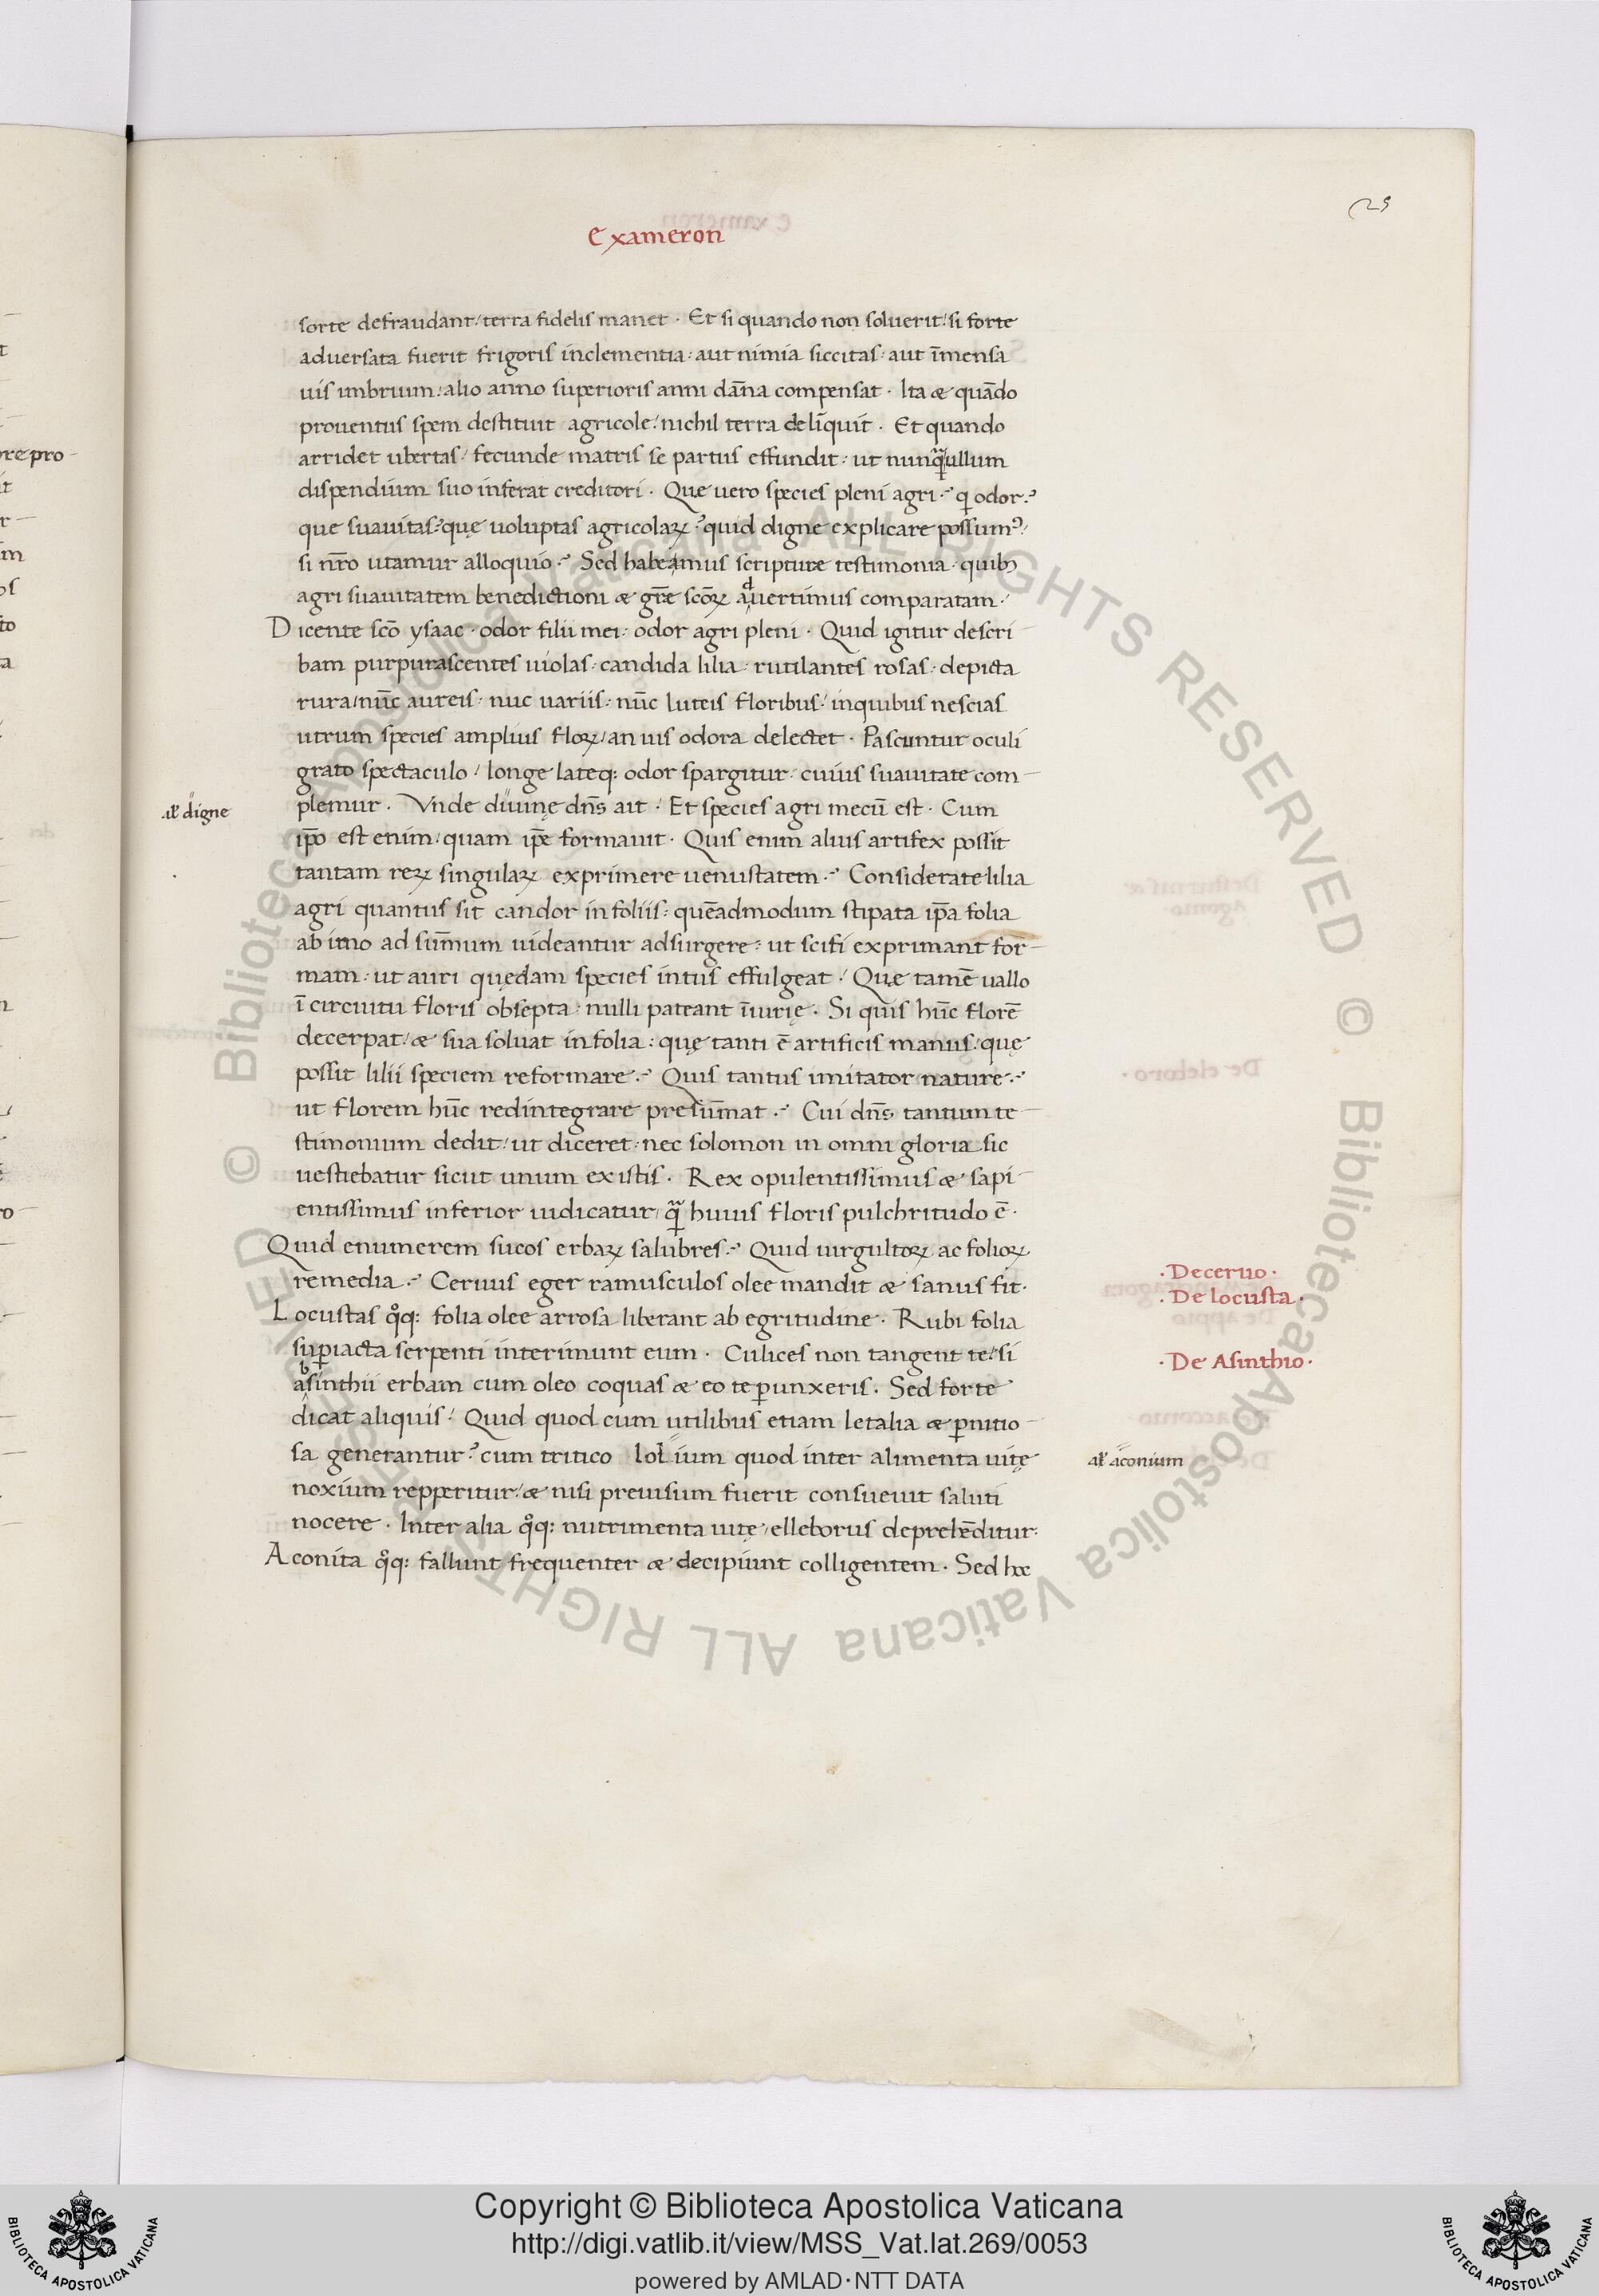 25
Exameron
sorte defraudant / terra fidelis manet · Et si quando non soluerit / si forte
aduersata fuerit frigoris inclementia : aut nimia siccitas : aut īmensa
uis imbrium / alio anno superioris anni dāna compensat · Ita & quādo
prouentus spem destituit agricole / nichil terra deliquit · Et quando
arridet ubertas / fecunde matris se partus effundit : ut nunꝗᷓ ullum
dispendium suo inferat creditori · Que uero species pleni agri ? qͥ odor ?
que suauitas ? quę uoluptas agricolaꝝ ? quid digne explicare possumꝰ /
si nr̄o utamur alloquio ? Sed habeamus scripture testimonia · quibꝫ
agri suauitatem benedictioni & gr̄e scōꝝ aduertimus comparatam ·
Dicente scō ysaac · odor filii mei : odor agri pleni · Quid igitur descri-
bam purpurascentes uiolas · candida lilia · rutilantes rosas · depicta
rura / nūc aureis · nuc uariis · nūc luteis floribus / inquibus nescias
utrum species amplius floꝝ / an uis odora delectet · Pascuntur oculi
grato spectaculo / longe lateq: odor spargitur · cuius suauitate com-
·al' digne
plemur · Vnde diuinę dn̄s ait · Et species agri mecū est · Cum
ip̄o est enim / quam ip̄e formauit · Quis enim alius artifex possit
tantam reꝝ singulaꝝ exprimere uenustatem ? Considerate lilia
agri quantus sit candor in foliis : quēadmodum stipata ip̄a folia
ab imo ad sum̄um uideantur adsurgere : ut scifi exprimant for-
mam : ut auri quędam species intus effulgeat / Quæ tamē uallo
ī circuitu floris obsepta · nulli pateant īiurię · Si quis hūc florē
decerpat / & sua soluat in folia : quę tanti ē artificis manus / quę
possit lilii speciem reformare ? Quis tantus imitator nature ?
ut florem hūc redintegrare presum̄at ? Cui dn̄s tantum te-
stimonium dedit / ut diceret · nec solomon in omni gloria sic
uestiebatur sicut unum ex istis · Rex opulentissimus & sapi-
entissimus inferior iudicatur / ꝗᷓ huius floris pulchritudo ē ·
Quid enumerem sucos erbaꝝ salubres ? Quid uirgultoꝝ ac folioꝝ
remedia ? Ceruus eger ramusculos olee mandit & sanus fit ·
· De ceruo ·
Locustas qͦq: folia olee arrosa liberant ab egritudine · Rubi folia
· De locusta ·
suꝑiacta serpenti interimunt eum · Culices non tangent te / si
· De Asinthio ·
absinthii erbam cum oleo coquas & eo te ꝑunxeris · Sed forte
dicat aliquis / Quid quod cum utilibus etiam letalia & ꝑnitio-
sa generantur ? cum tritico lolium quod inter alimenta uitę
al' aconium
noxium repperitur / & nisi preuisum fuerit consueuit saluti
nocere · Inter alia qͦq: nutrimenta uitę / elleborus deprehēditur :
Aconita qͦq: fallunt frequenter & decipiunt colligentem · Sed hæ
© Biblioteca Apostolica Vaticana ALL RIGHTS RESERVED © Biblioteca Apostolica Vaticana ALL RIGHTS RESERVED
Copyright © Biblioteca Apostolica Vaticana
http://digi.vatlib.it/view/MSS_Vat.lat.269/0053
powered by AMLAD·NTT DATA
BIBLIOTECA APOSTOLICA VATICANA
BIBLIOTECA APOSTOLICA VATICANA